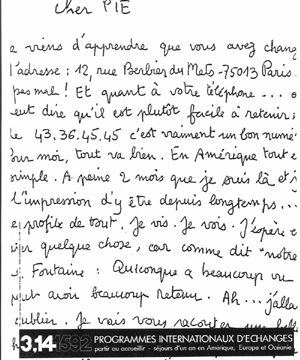 cher PIE
e viens d'apprendre que vous avez chang
l'adresse : 12, rue Berbier du Mets - 75013 Paris.
pas mal ! Et quant à votre téléphone ... o
eut dire qu'il est plutôt facile à retenir ;
le 43.36.45.45 c'est vraiment un bon numé
our moi, tout va bien. En Amérique tout e
simple. A peine 2 mois que je suis là et j
l'impression d'y être depuis longtemps ...
e profite de tout. Je vis. Je vois. J'espère e
quelque chose, car comme dit "notre
Fontaine : Quiconque a beaucoup vu
peut avoir beaucoup retenu. Ah ... j'alla
oublier. Je vais vous raconter
3.14 1592 PROGRAMMES INTERNATIONAUX D'ECHANGES
partir ou accueillir - séjours d'un an en Amérique, Europe et Océanie